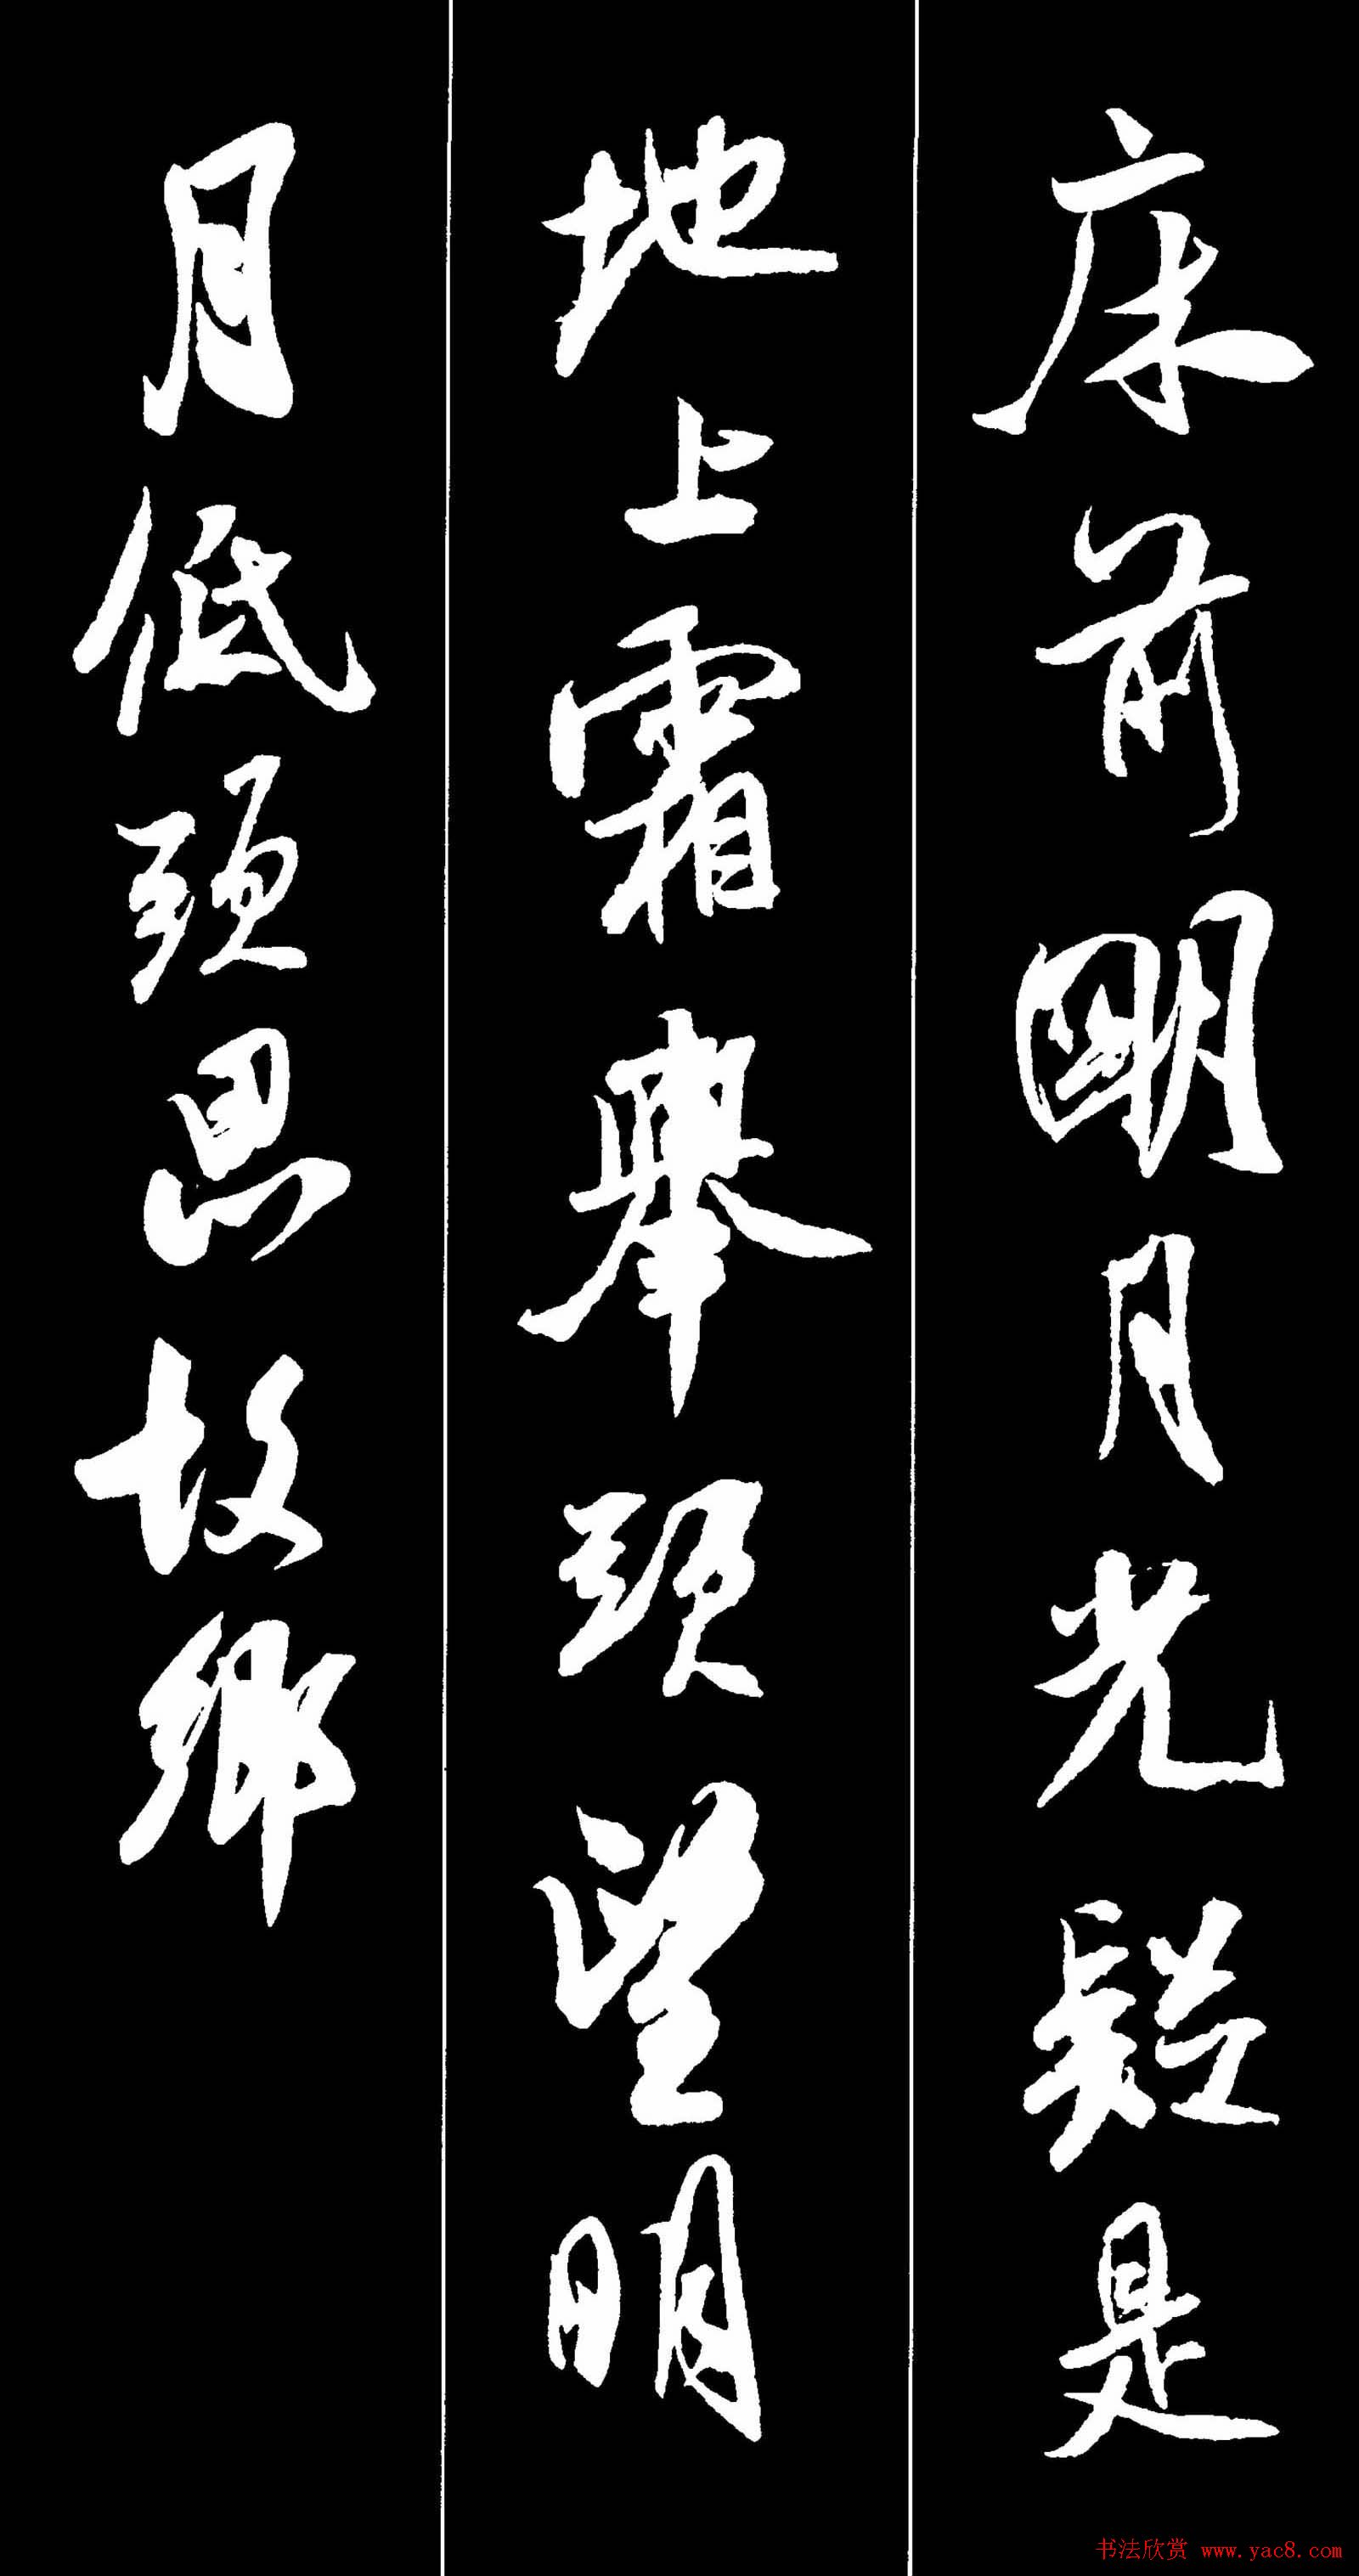 床前明月光疑是
地上霜舉頭望明
月低頭思故鄉
书法欣赏 www.yac8.com